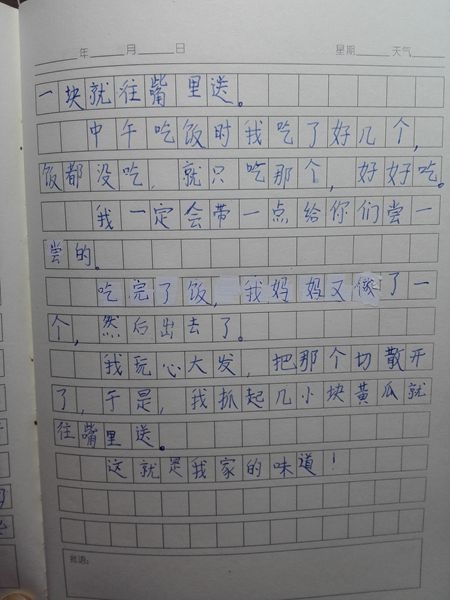 年 月 日 星期 天气
一块就往嘴里送。
中午吃饭时我吃了好几个,
饭都没吃,就只吃那个,好好吃。
我一定会带一点给你们尝一
尝的。
吃完了饭,我妈妈又做了一
个,然后出去了。
我玩心大发,把那个切散开
了,于是,我抓起几小块黄瓜就
往嘴里送。
这就是我家的味道!
批语: